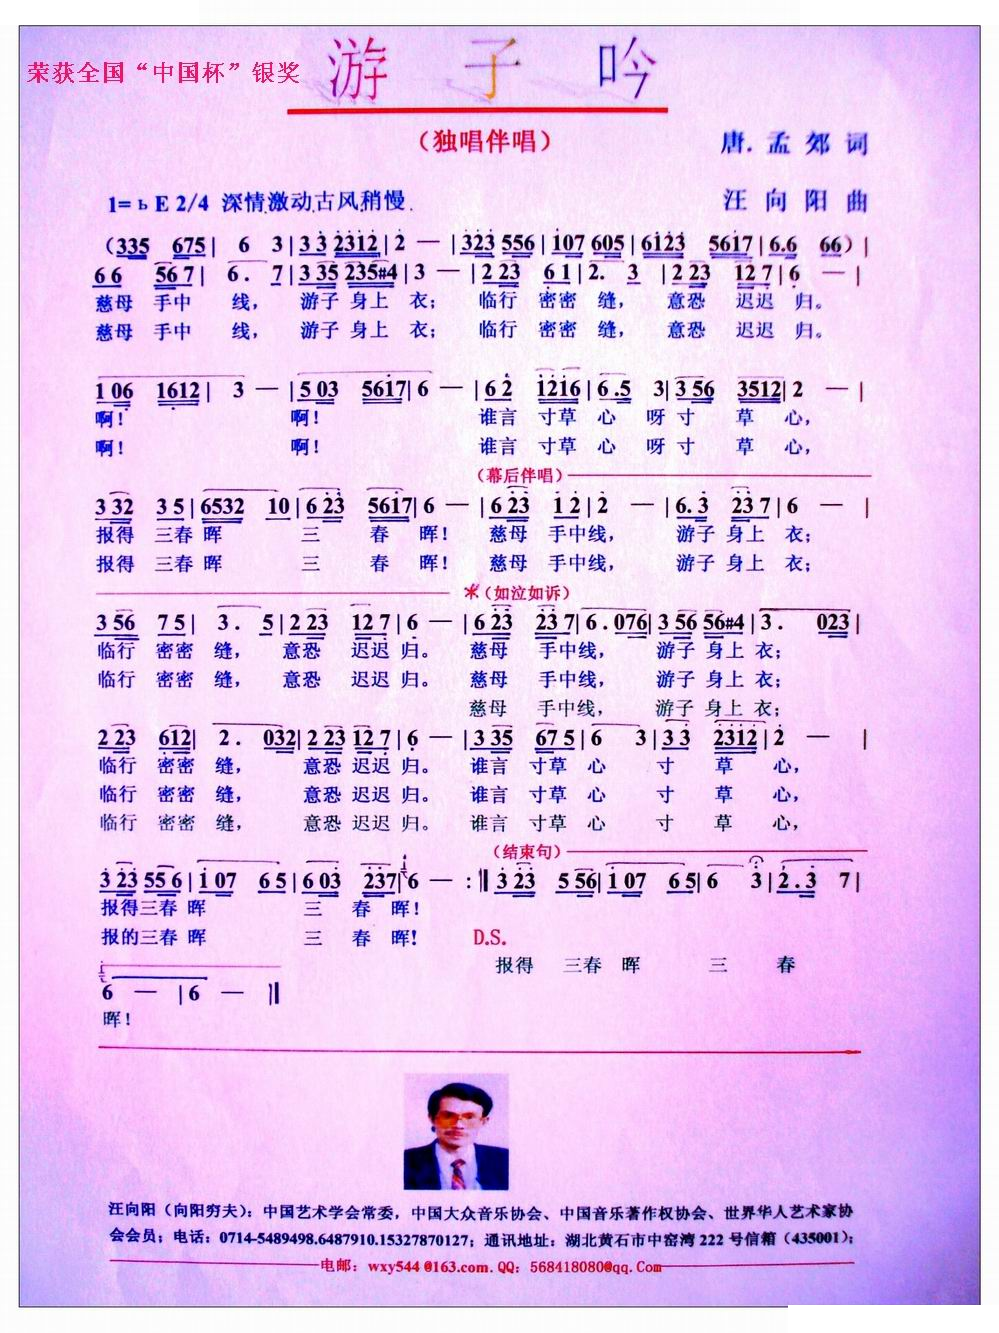 荣获全国“中国杯”银奖
游 子 吟
（独唱伴唱）
唐.孟郊 词
1=ьE 2/4 深情激动古风稍慢.
汪向阳 曲
（335 675| 6 3|33 2312|2 —|323 556|107 605|6123 5617|6.6 66）|
66 567|6. 7|335 235#4|3 —|223 61|2. 3|223 127|6 —|
慈母 手中 线， 游子 身上 衣； 临行 密密 缝， 意恐 迟迟 归。
慈母 手中 线， 游子 身上 衣； 临行 密密 缝， 意恐 迟迟 归。
106 1612| 3 —|503 5617|6 —|62 1216|6.5 3|356 3512|2 —|
啊！ 啊！ 谁言 寸草 心 呀 寸 草 心，
啊！ 啊！ 谁言 寸草 心 呀 寸 草 心，
（幕后伴唱）
332 35|6532 10|623 5617|6 —|623 12|2 —|6.3 237|6 —|
报得 三春 晖 三 春 晖！ 慈母 手中线， 游子 身上 衣；
报得 三春 晖 三 春 晖！ 慈母 手中线， 游子 身上 衣；
*（如泣如诉）
356 75| 3. 5|223 127|6 —|623 237|6.076|356 56#4|3. 023|
临行 密密 缝， 意恐 迟迟 归。 慈母 手中线， 游子 身上 衣；
临行 密密 缝， 意恐 迟迟 归。 慈母 手中线， 游子 身上 衣；
慈母 手中线， 游子 身上 衣；
223 612| 2. 032|223 127|6 —|335 675|6 3|33 2312|2 —|
临行 密密 缝， 意恐 迟迟 归。 谁言 寸草 心 寸 草 心，
临行 密密 缝， 意恐 迟迟 归。 谁言 寸草 心 寸 草 心，
临行 密密 缝， 意恐 迟迟 归。 谁言 寸草 心 寸 草 心，
（结束句）
323 556|107 65|603 237|6 —:‖323 556|107 65|6 3|2.3 7|
报得三春 晖 三 春 晖！
报的三春 晖 三 春 晖！ D.S.
报得 三春 晖 三 春
6 —|6 —‖
晖！
汪向阳（向阳穷夫）：中国艺术学会常委，中国大众音乐协会、中国音乐著作权协会、世界华人艺术家协
会会员；电话：0714-5489498.6487910.15327870127；通讯地址：湖北黄石市中窑湾 222 号信箱（435001）；
电邮：wxy544@163.com.QQ：568418080@qq.Com